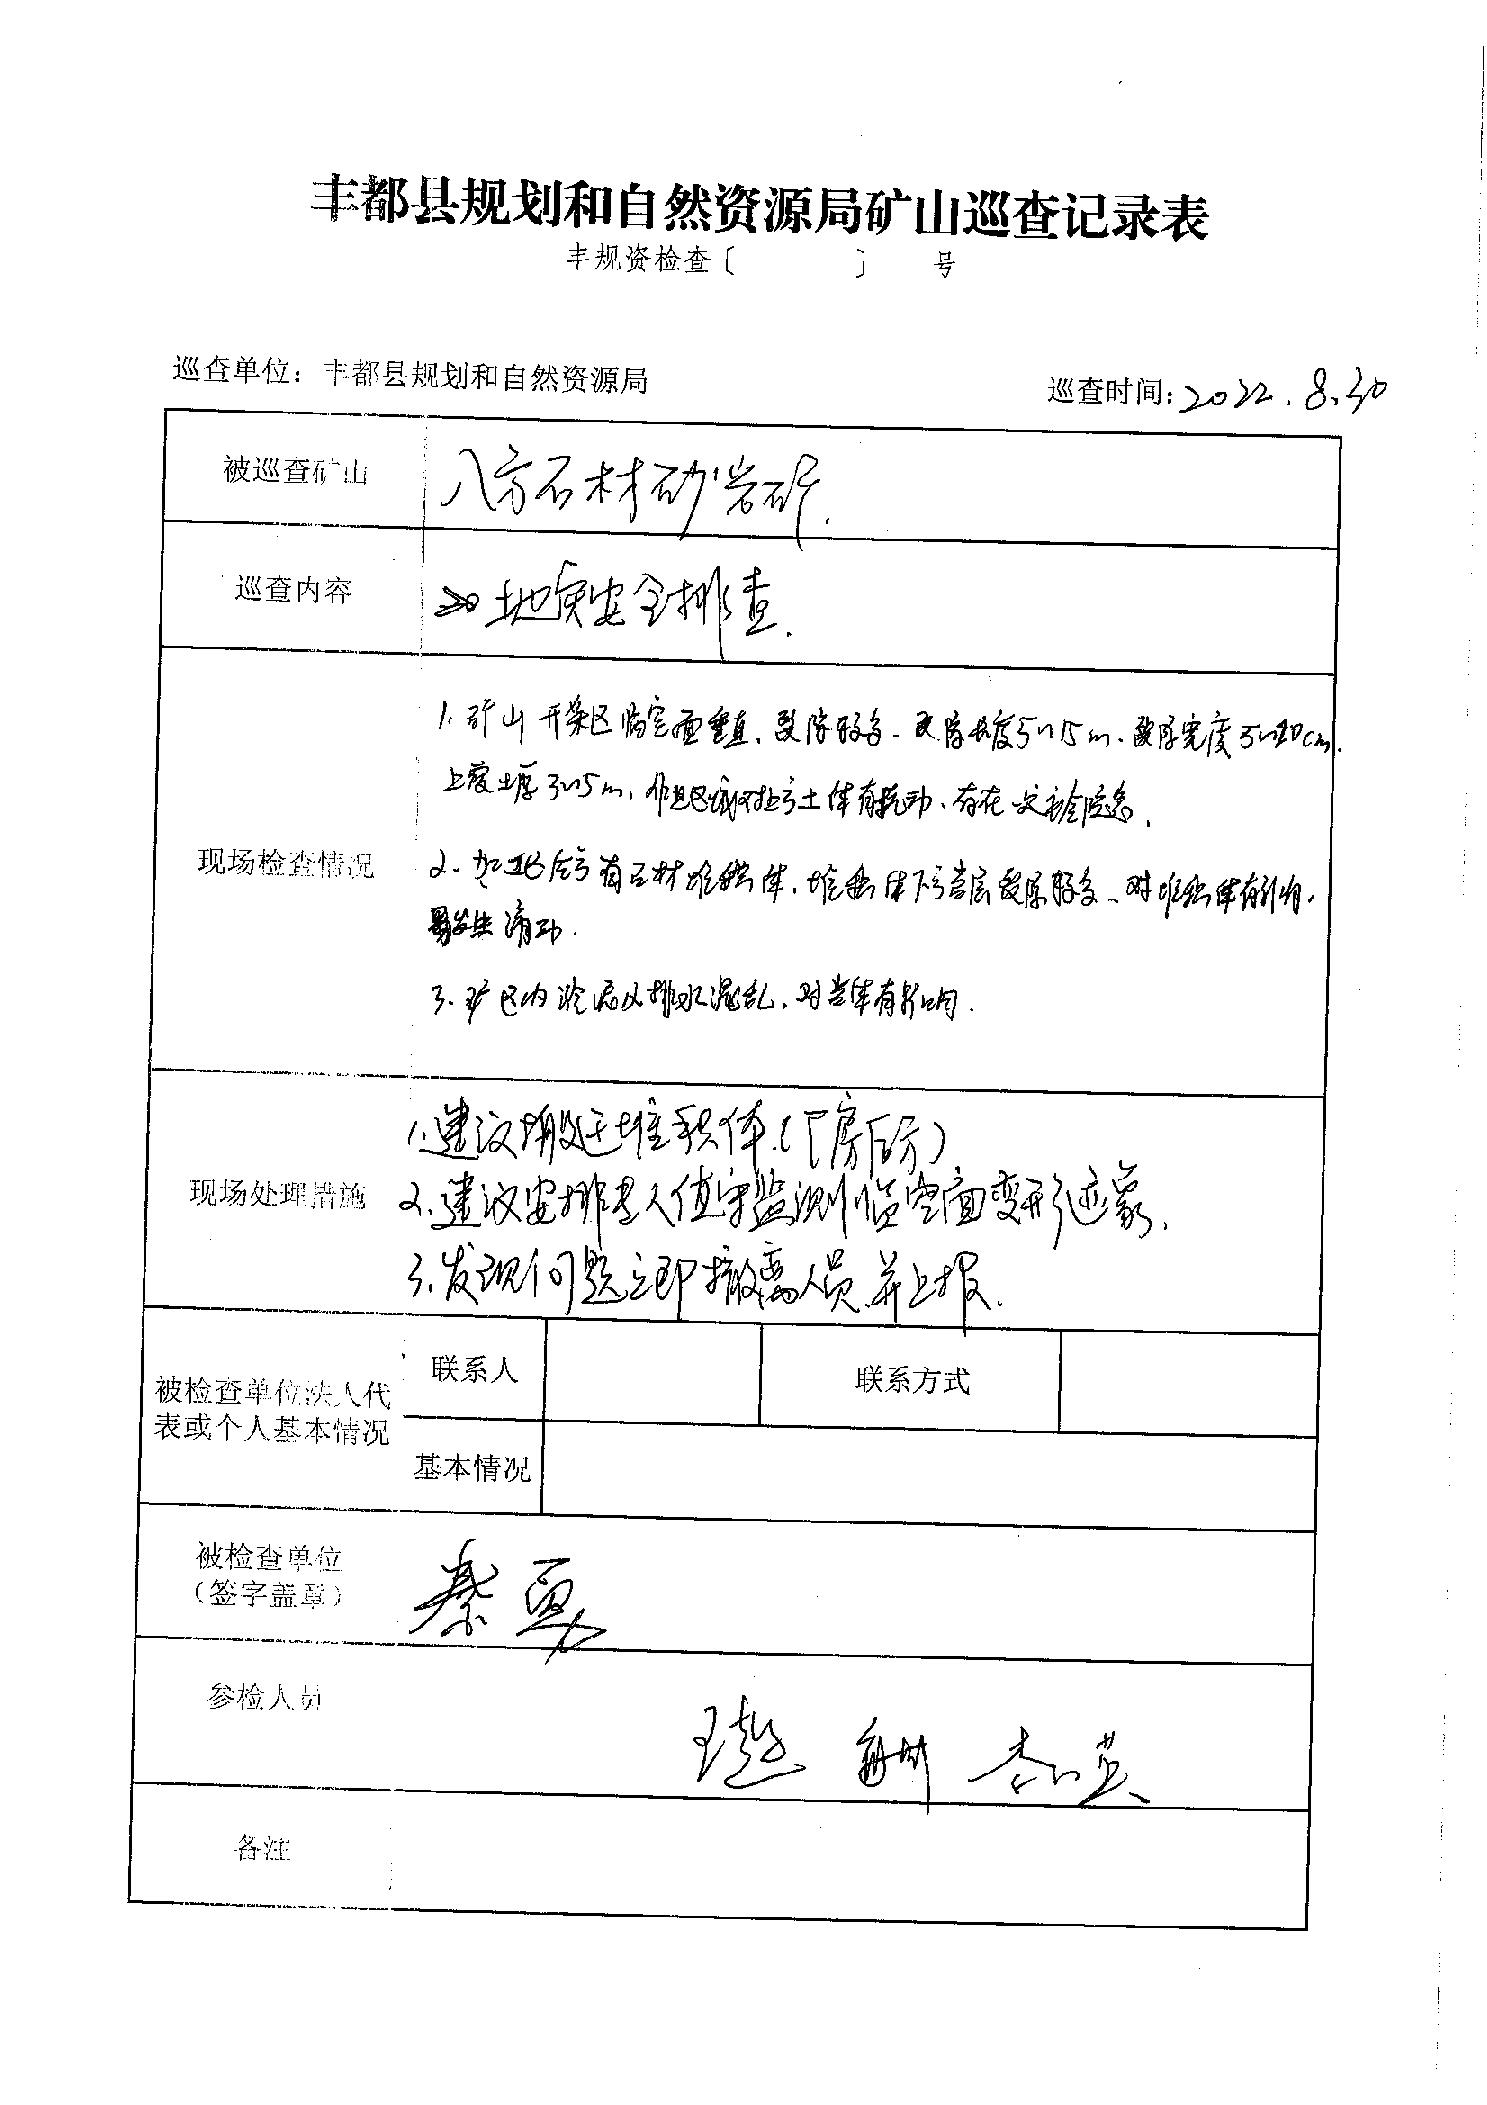 丰都县规划和自然资源局矿山巡查记录表
丰规资检查〔 〕 号
巡查单位：丰都县规划和自然资源局
巡查时间：2022.8.30
被巡查矿山
八方石材砂岩矿.
巡查内容
地质安全排查.
现场检查情况
1.矿山开采区临空面垂直、裂隙较多、裂隙长度5~15m、裂隙宽度5~20cm.
上覆土厚3~5m，作业区域对上方土体有扰动、存在安全隐患.
2.加工区后方有石材堆积体，堆积体下方岩层裂隙较多、对堆积体有影响，
易发生滑动.
3.矿区内 排水混乱，对岩体有影响.
现场处理措施
1.建议搬迁堆积体.(厂房后方)
2.建议安排专人值守监测临空面变形迹象.
3.发现问题立即撤离人员并上报.
被检查单位法人代
表或个人基本情况
联系人
联系方式
基本情况
被检查单位
（签字盖章）
秦勇
参检人员
备注